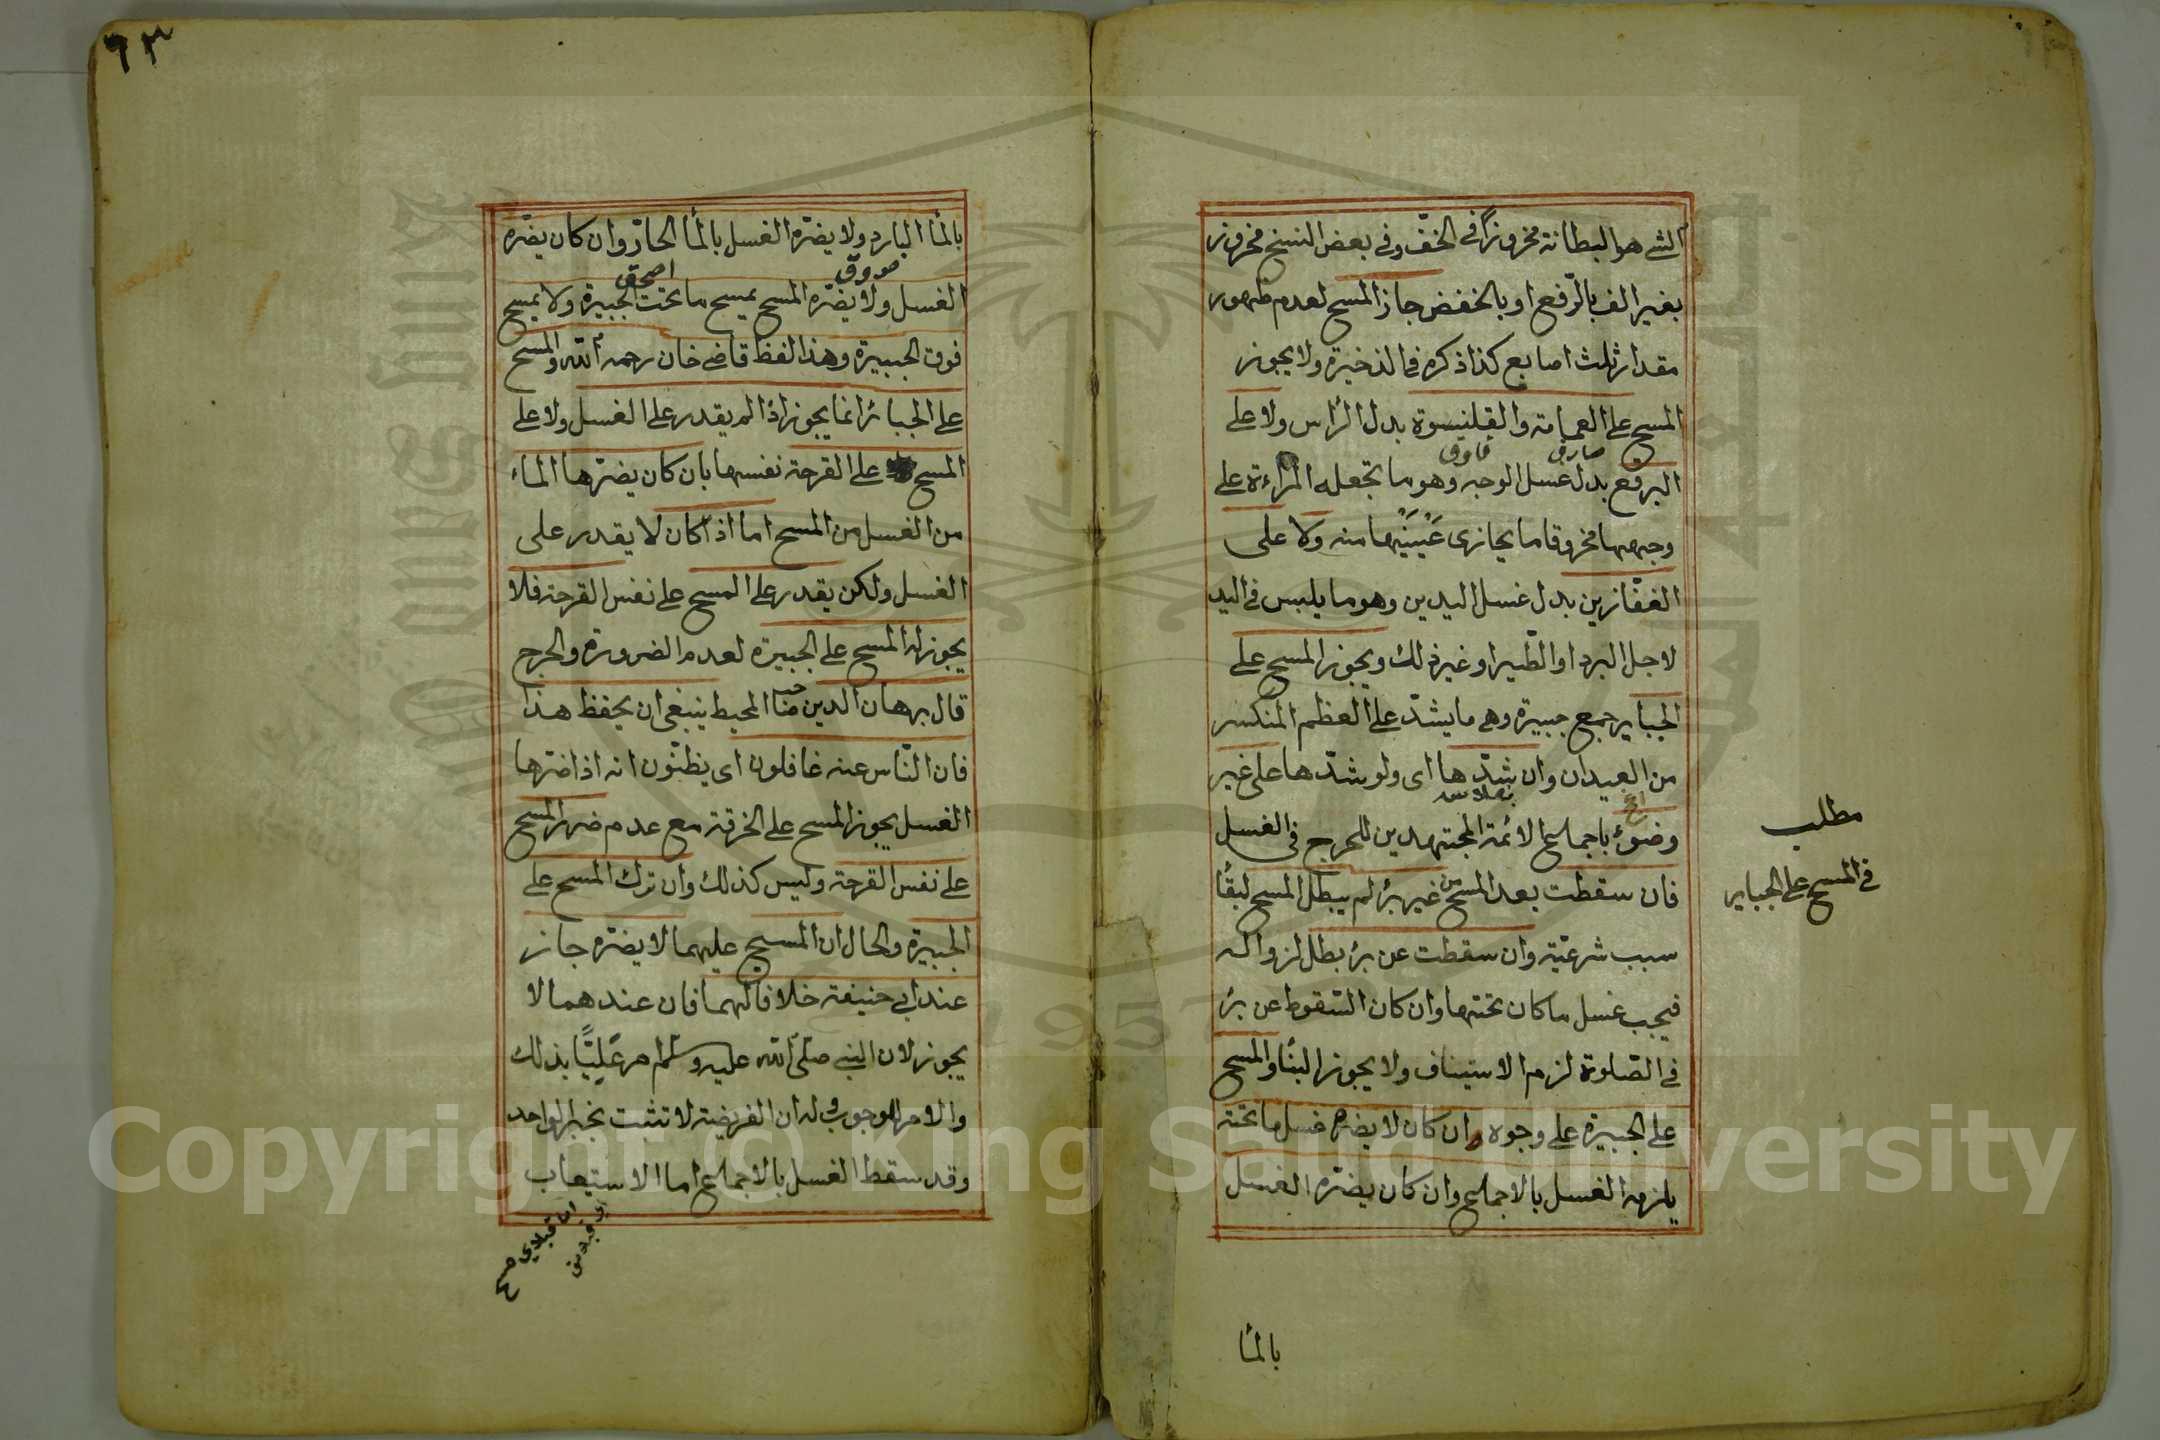 الشئ هو البطانة مخروزًا في الخفّ وفي بعض النسخ مخروز
بغير الف بالرّفع او بالخفض جاز المسح لعدم ظهور
مقدار ثلث اصابع كذا ذكره في الذخيرة ولا يجوز
المسح على العمامة والقلنسوة بدل الرّاس ولا على
البرقع بدل غسل الوجه وهو ما تجعله المراءة على
وجهها مخروقا ما يحازى عَيْنَيْها منه ولا على
القفّازين بدل غسل اليدين وهو ما يلبس في اليد
لاجل البرد او الطّير او غير ذلك ويجوز المسح على
الجباير جمع جبيرة وهي ما يشدّ على العظم المنكسر
من العيدان وان شدّها اى ولو شدّها على غير
وضوء باجماع الائمة المجتهدين للحرج في الغسل
فان سقطت بعد المسح من غير برء لم يبطل المسح لبقاء
سبب شرعيّة وان سقطت عن برء بطل لزواله
فيجب غسل ما كان تحتها وان كان السّقوط عن برء
في الصّلوة لزم الاستيناف ولا يجوز البناء والمسح
على الجبيرة على وجوه ان كان لا يضره غسل ما تحته
يلزمه الغسل بالاجماع وان كان يضرّه الغسل
مطلب
في المسح على الجباير
بالماء
٦٣
بالماء البارد ولا يضرّه الغسل بالماء الحارّ وان كان يضرّه
الغسل ولا يضرّه المسح يمسح ما تحت الجبيرة ولا يمسح
فوق الجبيرة وهذا لفظ قاضي خان رحمه الله والمسح
على الجبائر انما يجوز اذا لم يقدر على الغسل ولا على
المسح على القرحة نفسها بان كان يضرّها الماء
من الغسل من المسح اما اذا كان لا يقدر على
الغسل ولكن يقدر على المسح على نفس القرحة فلا
يجوز له المسح على الجبيرة لعدم الضرورة والحرج
قال برهان الدين صاحب المحيط ينبغى ان يحفظ هذا
فان النّاس عنه غافلون اى يظنّون انه اذا ضرّها
الغسل يجوز المسح على الخرقة مع عدم ضرر المسح
على نفس القرحة وليس كذلك وان ترك المسح على
الجبيرة والحال ان المسح عليهما لا يضرّه جاز
عند ابي حنيفة خلافا لهما فان عندهما لا
يجوز لان النبي صلّى الله عليه وسلم امر عَلِيًّا بذلك
والامر للوجوب وله ان الفريضة لا تثبت بخبر الواحد
وقد سقط الغسل بالاجماع اما الاستيعاب
Copyright © King Saud University
1957